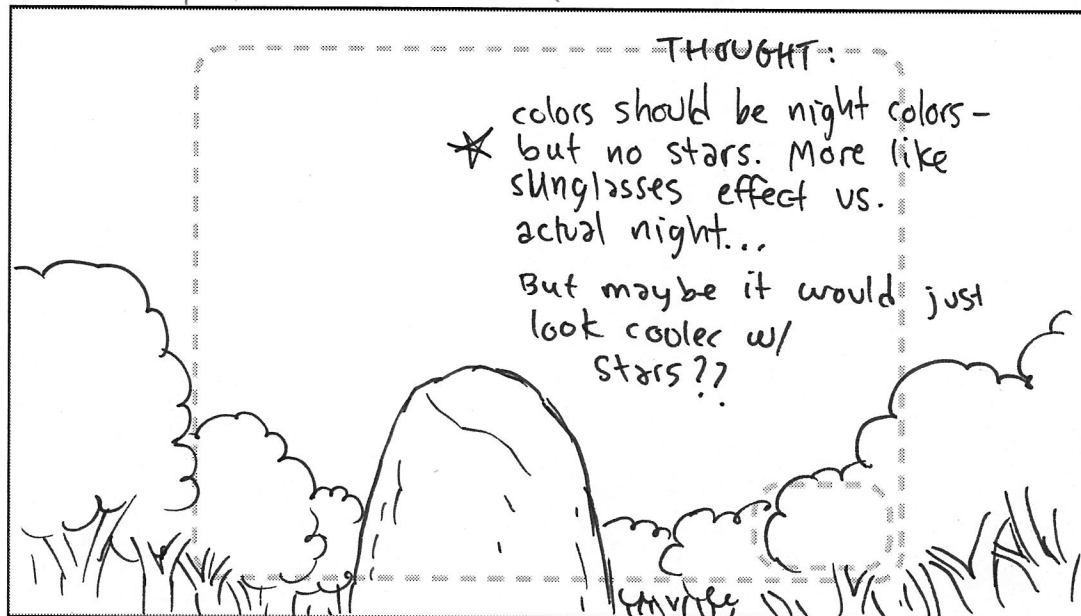 THOUGHT:
colors should be night colors-
but no stars. More like
sunglasses effect vs.
actual night...
But maybe it would just
look cooler w/
stars??